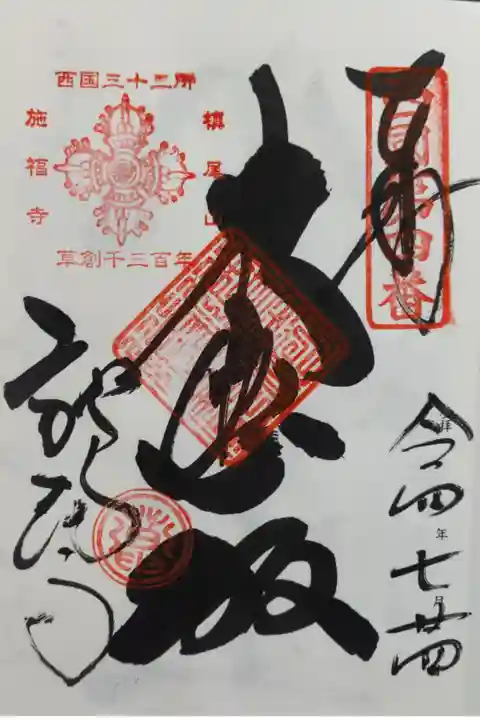 奉
西国第四番
令四年七月廿四
拝
西国三十三所
槇尾山
施福寺
草創千三百年
大悲殿
施福寺